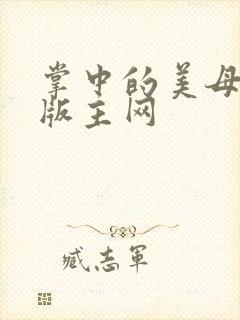 掌中的美母
版主网
臧志軍